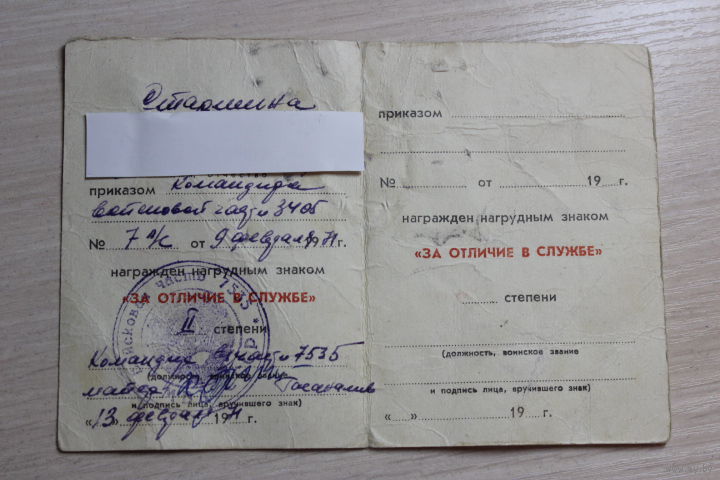 Старшина
приказом Командира
войсковой части 3405
№ 7 л/с от 9 февраля 1971 г.
награжден нагрудным знаком
«ЗА ОТЛИЧИЕ В СЛУЖБЕ»
II степени
Командир в/части 7535
(должность, воинское звание
майор
и подпись лица, вручившего знак)
«13» февраля 1971 г.
войсковая часть 7535
приказом
№ от 19 г.
награжден нагрудным знаком
«ЗА ОТЛИЧИЕ В СЛУЖБЕ»
степени
(должность, воинское звание
и подпись лица, вручившего знак)
« » 19 г.